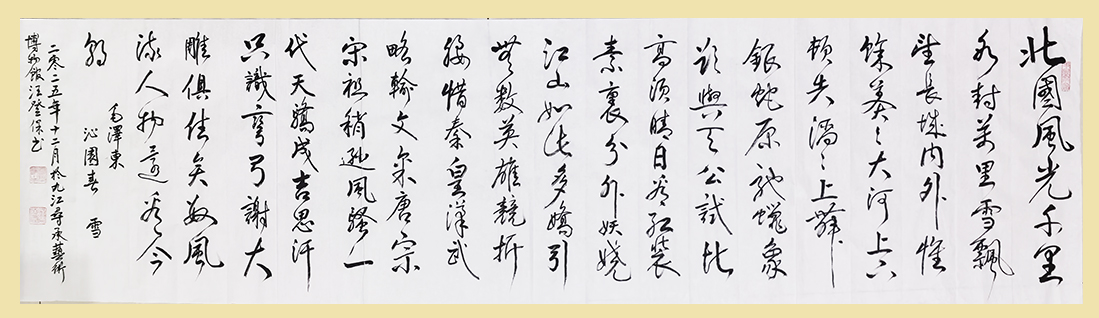 北國風光千里
冰封萬里雪飄
望長城內外惟
餘莽々大河上下
頓失滔々山舞
銀蛇原馳蠟象
欲與天公試比
高須晴日看紅裝
素裹分外妖嬈
江山如此多嬌引
無數英雄競折
腰惜秦皇漢武
略輸文采唐宗
宋祖稍遜風騷一
代天驕成吉思汗
只識彎弓謝大
雕俱往矣數風
流人物還看今
朝
毛澤東
沁園春 雪
二零二五年十二月於九江承藝術
博物館汪登保書